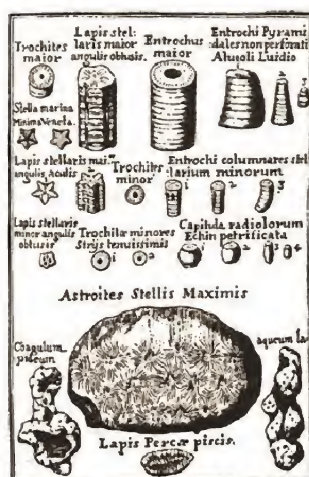 Trochites maior
Lapis stel:
laris maior
angulis obtusis.
Entrochus
maior
Entrochi Pyrami
dales non perforati
Aluioli Luidio
1 2 3
Stella marina
Minima Veneta.
Lapis stellaris mai.
angulis Acutis
Trochites
minor
Entrochi columnares stel
larium minorum
1 2 3
Lapis stellaris
minor angulis
obtusis
Trochitæ minores
Strijs tenuissimis
1 2
Capitula radiolorum
Echini petrificata
1 2 3 4
Astroites Stellis Maximis
Coagulum
piceum
aqueum
Lapis Percæ piscis.